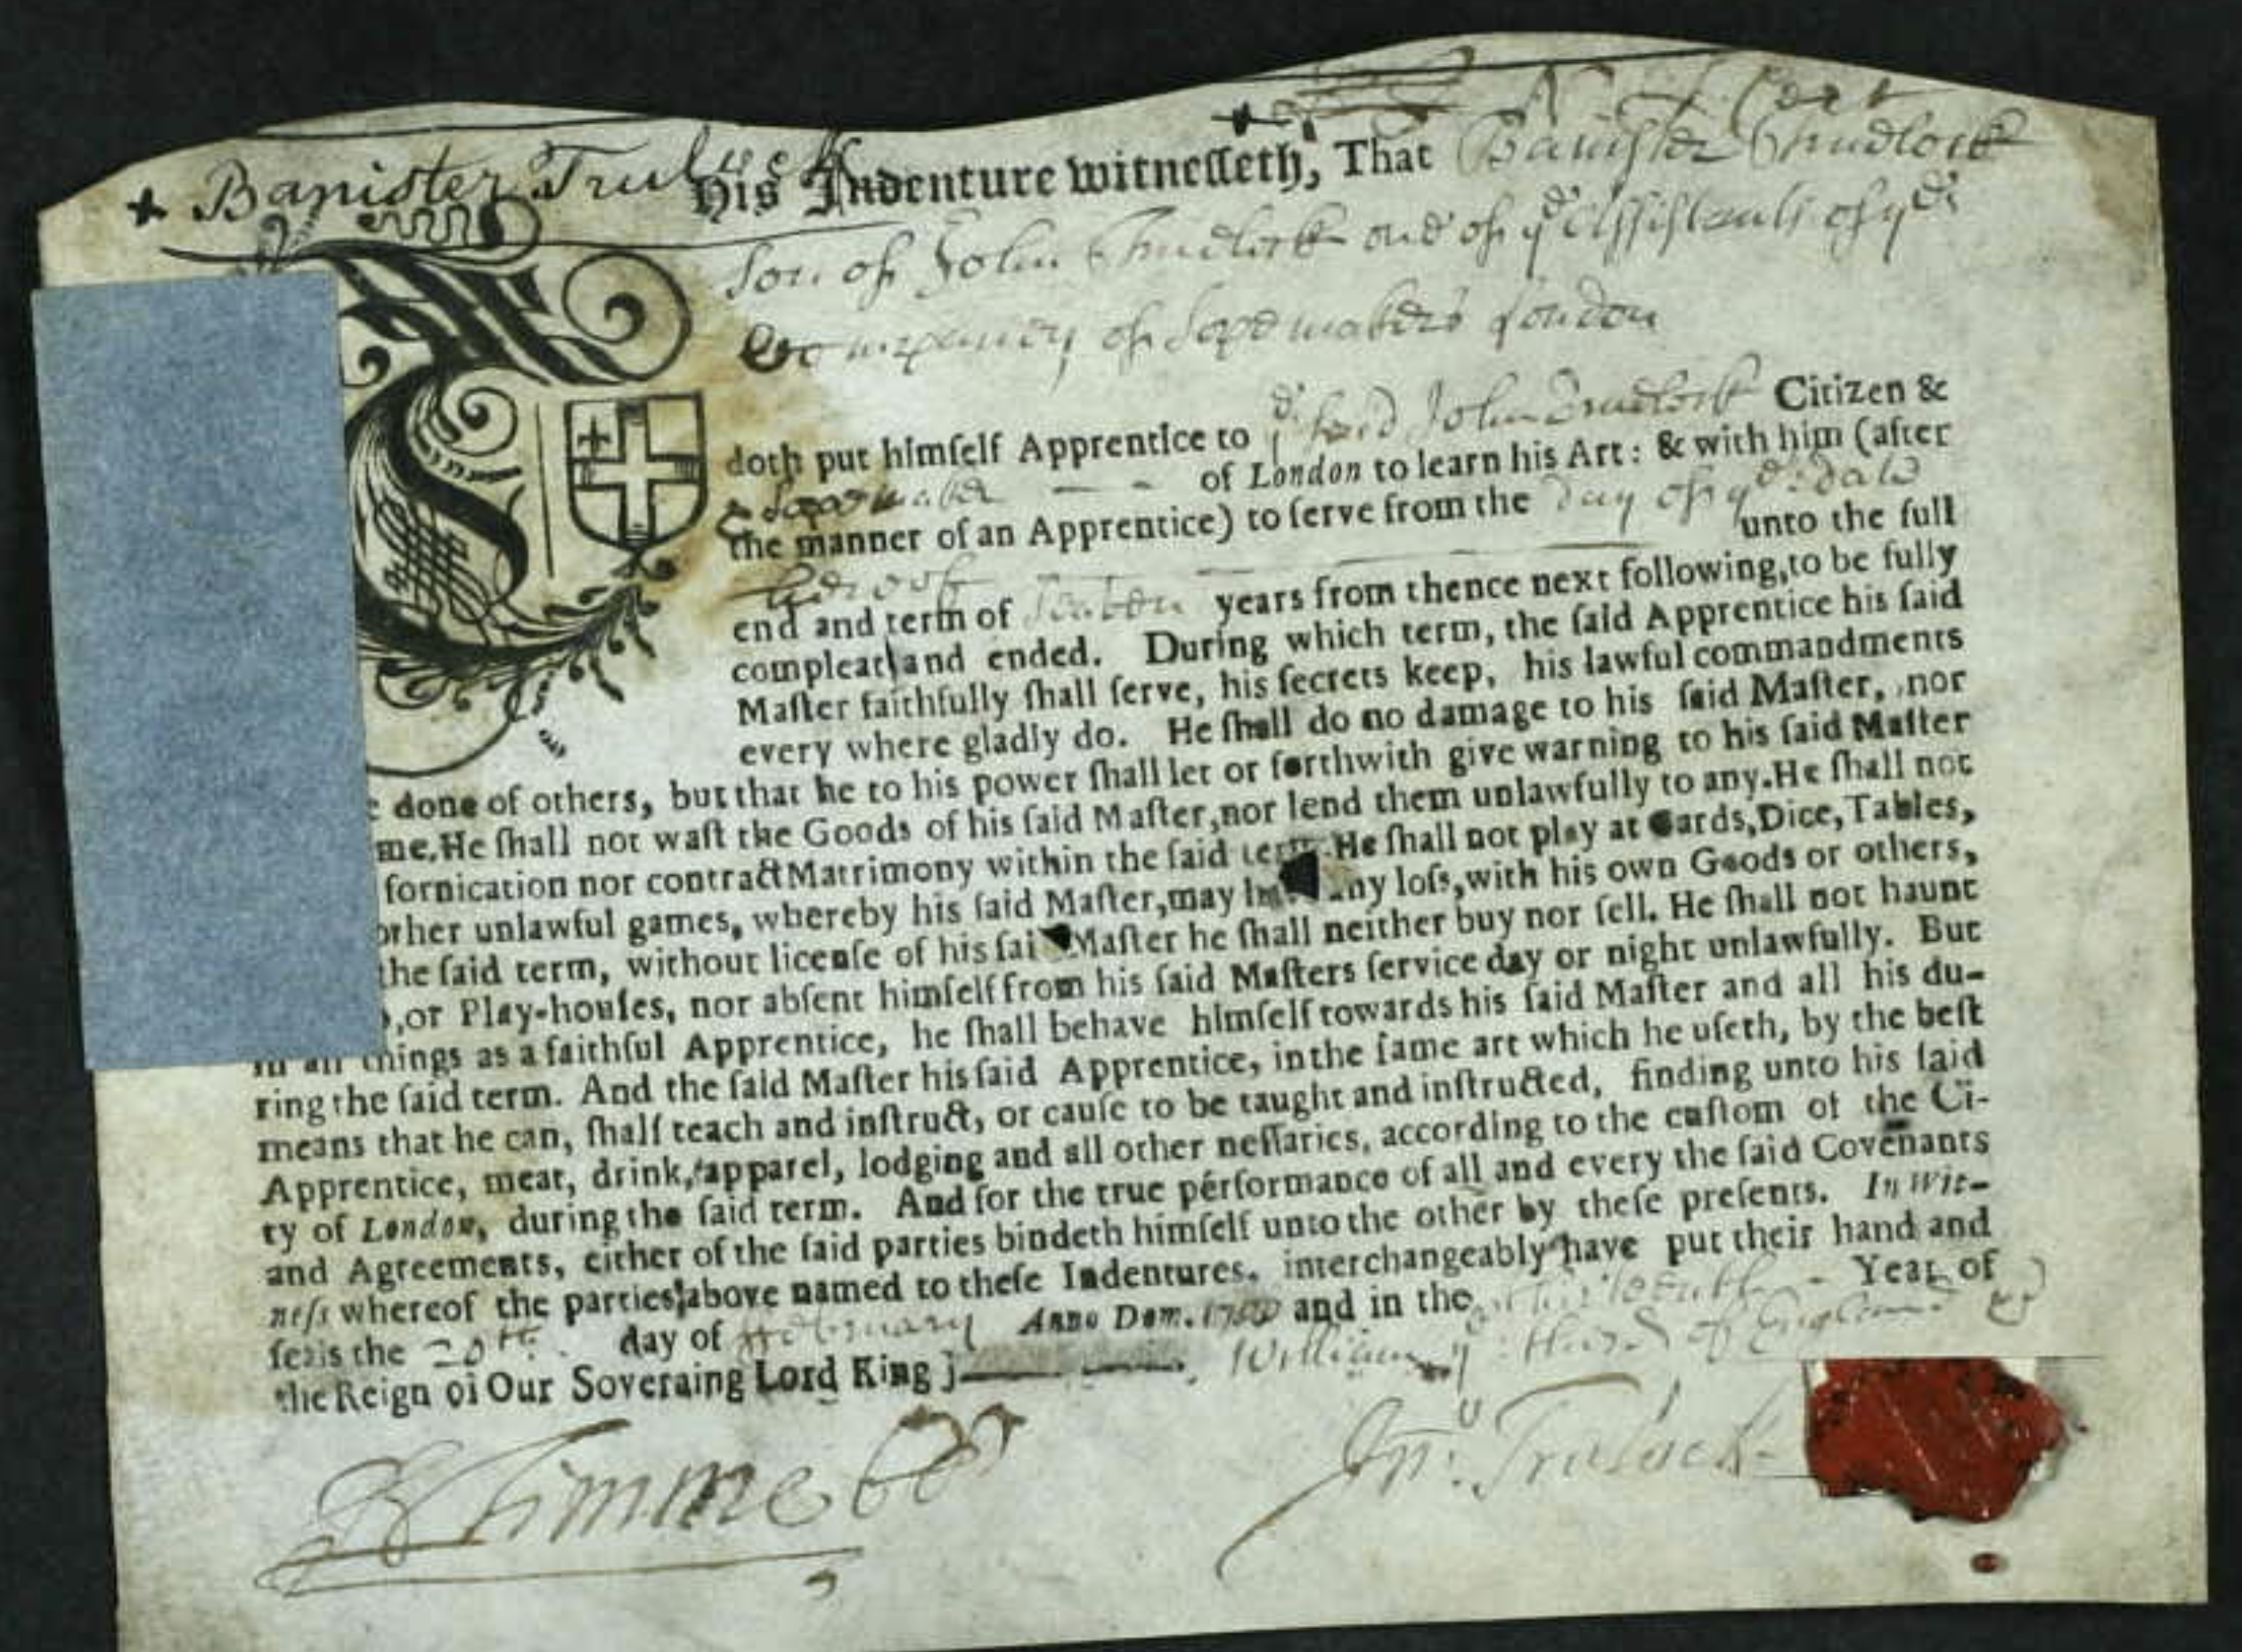 Banister Truluck
His Indenture witnesseth, That Banister Trudlock
Son of John Trudlock one of yͤ Assistants of yͤ
Company of Sopemakers London
doth put himſelf Apprentice to yͤ said John Trudlock Citizen &
Sopemaker of London to learn his Art: & with him (after
the manner of an Apprentice) to ſerve from the Day of yͤ date
hereof unto the full
end and term of Seaben years from thence next following, to be fully
compleat and ended. During which term, the ſaid Apprentice his ſaid
Maſter faithfully ſhall ſerve, his ſecrets keep, his lawful commandments
every where gladly do. He ſhall do no damage to his ſaid Maſter, nor
done of others, but that he to his power ſhall let or forthwith give warning to his ſaid Maſter
me. He ſhall not waſt the Goods of his ſaid Maſter, nor lend them unlawfully to any. He ſhall not
fornication nor contract Matrimony within the ſaid term. He ſhall not play at Cards, Dice, Tables,
other unlawful games, whereby his ſaid Maſter, may any loſs, with his own Goods or others,
the ſaid term, without licenſe of his ſaid Maſter he ſhall neither buy nor ſell. He ſhall not haunt
, or Play-houſes, nor abſent himſelf from his ſaid Maſters ſervice day or night unlawfully. But
in all things as a faithful Apprentice, he ſhall behave himſelf towards his ſaid Maſter and all his du-
ring the ſaid term. And the ſaid Maſter his ſaid Apprentice, in the ſame art which he uſeth, by the beſt
means that he can, ſhall teach and inſtruct, or cauſe to be taught and inſtructed, finding unto his ſaid
Apprentice, meat, drink, apparel, lodging and all other neſſaries, according to the cuſtom of the Ci-
ty of London, during the ſaid term. And for the true performance of all and every the ſaid Covenants
and Agreements, either of the ſaid parties bindeth himſelf unto the other by theſe preſents. In Wit-
neſs whereof the parties above named to theſe Indentures, interchangeably have put their hand and
ſeals the 20th day of February Anno Dom. 1700 and in the Year of
the Reign of Our Soveraing Lord King J William yͤ third of England &
Jnͦ: Truluck